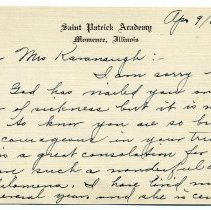 Saint Patrick Academy
Momence, Illinois
Apr 9/
Mrs Kavanaugh :-
I am sorry
God has nailed you
of sickness but it is
to know you are so b
courageous in your tr
is a great consolation for
have such a wonderful
lomena. I have had
several years and she is cer